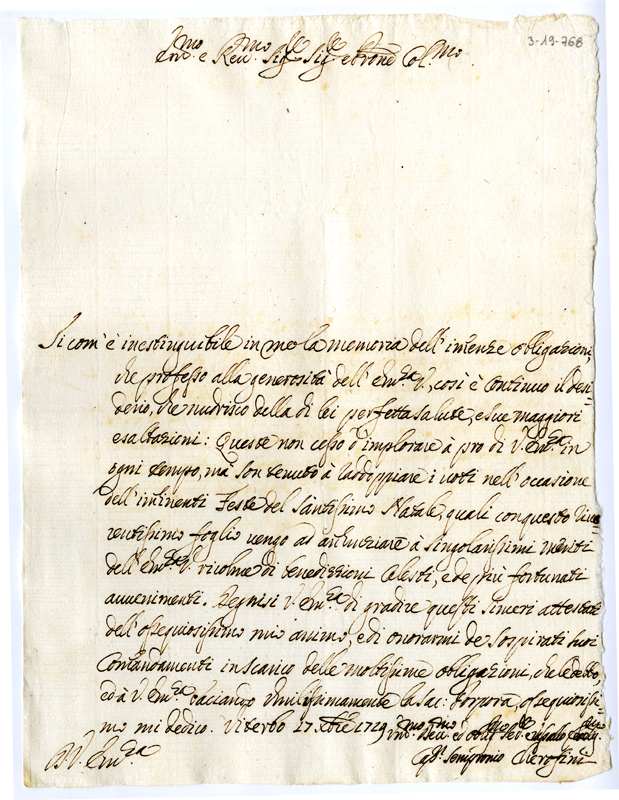 3-19-768
Em.mo e Rev.mo Sig.re Sig.re e Pron Col.mo
Si com' è inestinguibile in me la memoria dell' imẽnze obligazioni,
che professo alla generosità dell' Em.za V., così è continuo il desi=
derio, che nudrisco della di lei perfetta salute, e sue maggiori
esaltazioni: Queste non cesso d' implorare à pro di V. Em.za in
ogni tempo, mà son tenuto à raddoppiare i voti nell' occasione
dell' iminenti Feste del Santissimo Natale, quali con questo rive=
rentissimo foglio vengo ad annunziare à singolarissimi meriti
dell' Em.za V. ricolme di benedizzioni Celesti, e de più fortunati
avvenimenti. Degnisi V. Em.za di gradire questi sinceri attestati
dell' ossequiosissimo mio animo, e di onorarmi de sospirati suoi
Comandamenti in scarico delle moltissime obligazioni, che le debbo,
ed à V. Em.za baciando Umilissimamente la Sac: Porpora, ossequiosissi=
mo mi dedico. Viterbo 17 Xbre 1729
Um.mo Dev.mo ed Obl.mo
Di V. Em.za
Sempronio